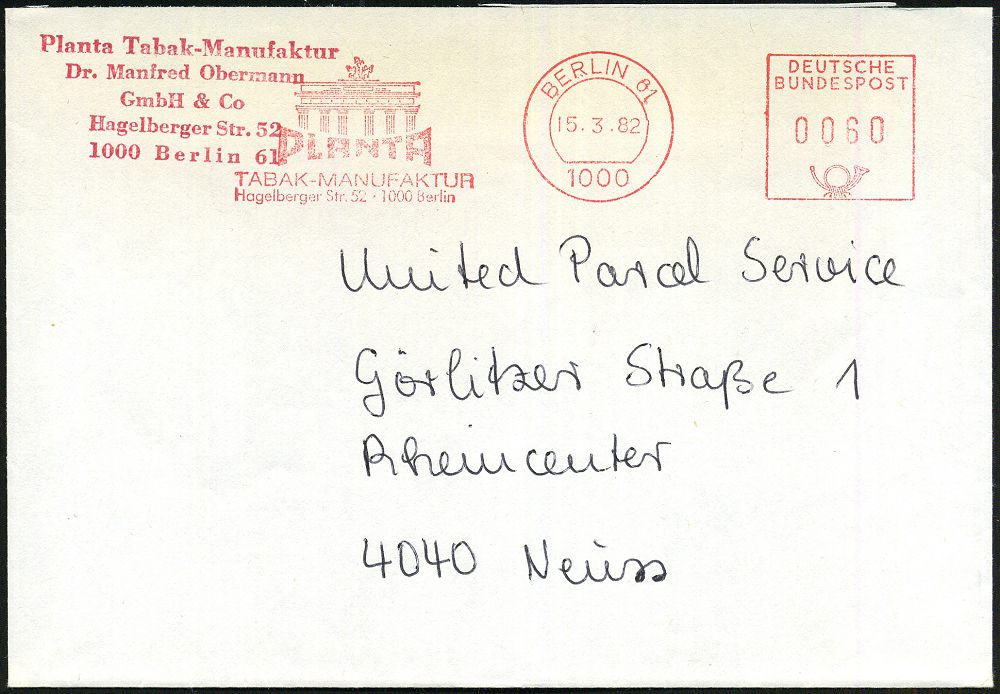 Planta Tabak-Manufaktur
Dr. Manfred Obermann
GmbH & Co
Hagelberger Str. 52
1000 Berlin 61
PLANTA
TABAK-MANUFAKTUR
Hagelberger Str. 52 · 1000 Berlin
BERLIN 61
15.3.82
1000
DEUTSCHE
BUNDESPOST
0060
United Parcel Service
Görlitzer Straße 1
Rheincenter
4040 Neuss